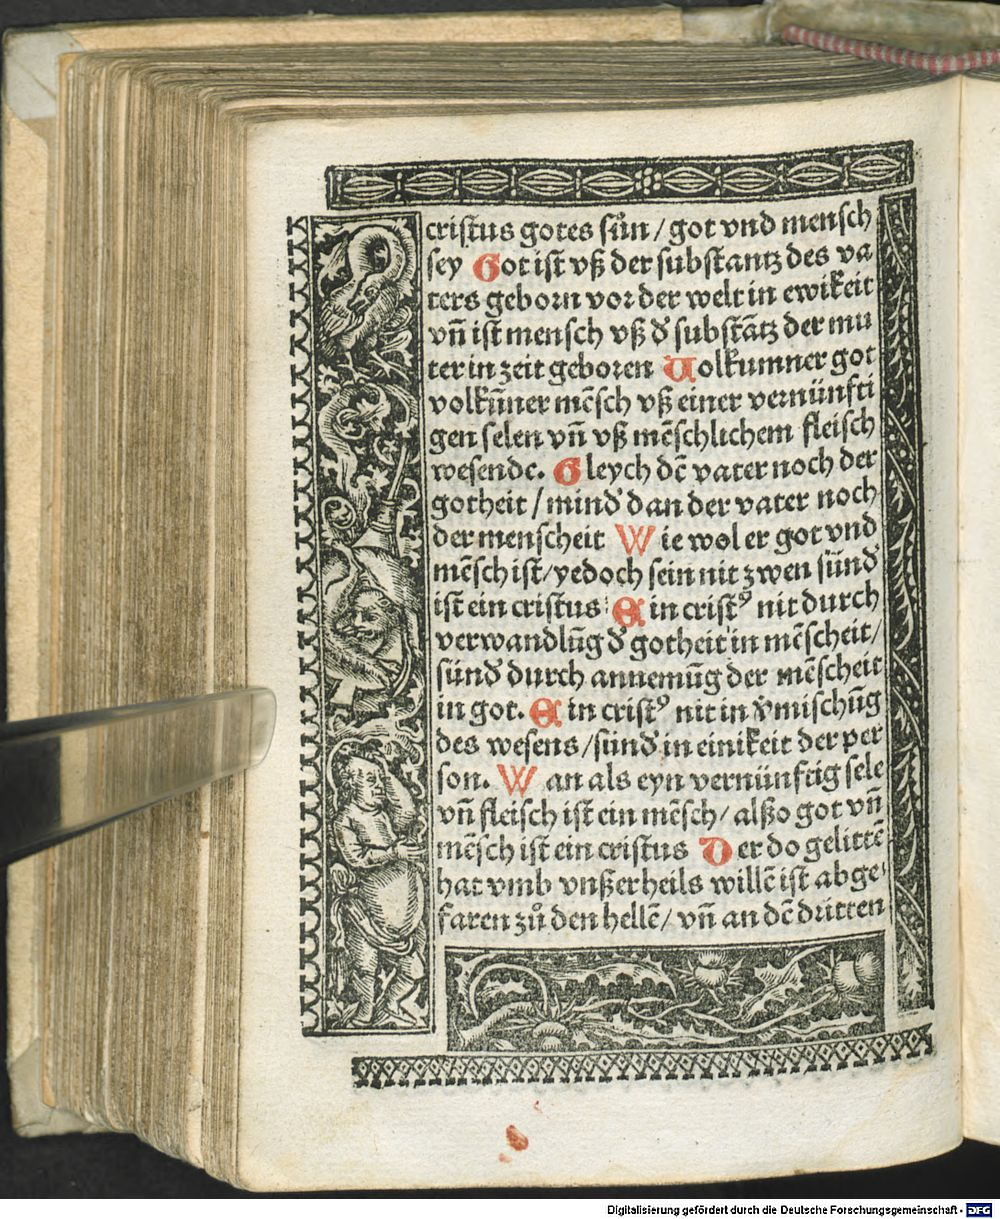 cristus gotes sůn / got vnd mensch
sey Got ist vß der substantz des va
ters geborn vor der welt in ewikeit
vn̄ ist mensch vß ď substātz der mu
ter in zeit geboren Volkumner got
volkūner mēsch vß einer vernünfti
gen selen vn̄ vß mēschlichem fleisch
wesende. Gleych dē vater noch der
gotheit / minď dan der vater noch
der menscheit Wie wol er got vnd
mēsch ist / yedoch sein nit zwen sünď
ist ein cristus: Ein cristꝰ nit durch
verwandlūg ď gotheit in mēscheit /
sünď durch annemūg der mēscheit
in got. Ein cristꝰ nit in v̄mischūg
des wesens / sünď in einikeit der per
son. Wan als eyn vernünftig sele
vn̄ fleisch ist ein mēsch / alßo got vn̄
mēsch ist ein cristus Der do gelittē
hat vmb vnßer heils willē ist abge
faren zů den hellē / vn̄ an dē dritten
Digitalisierung gefördert durch die Deutsche Forschungsgemeinschaft - DFG